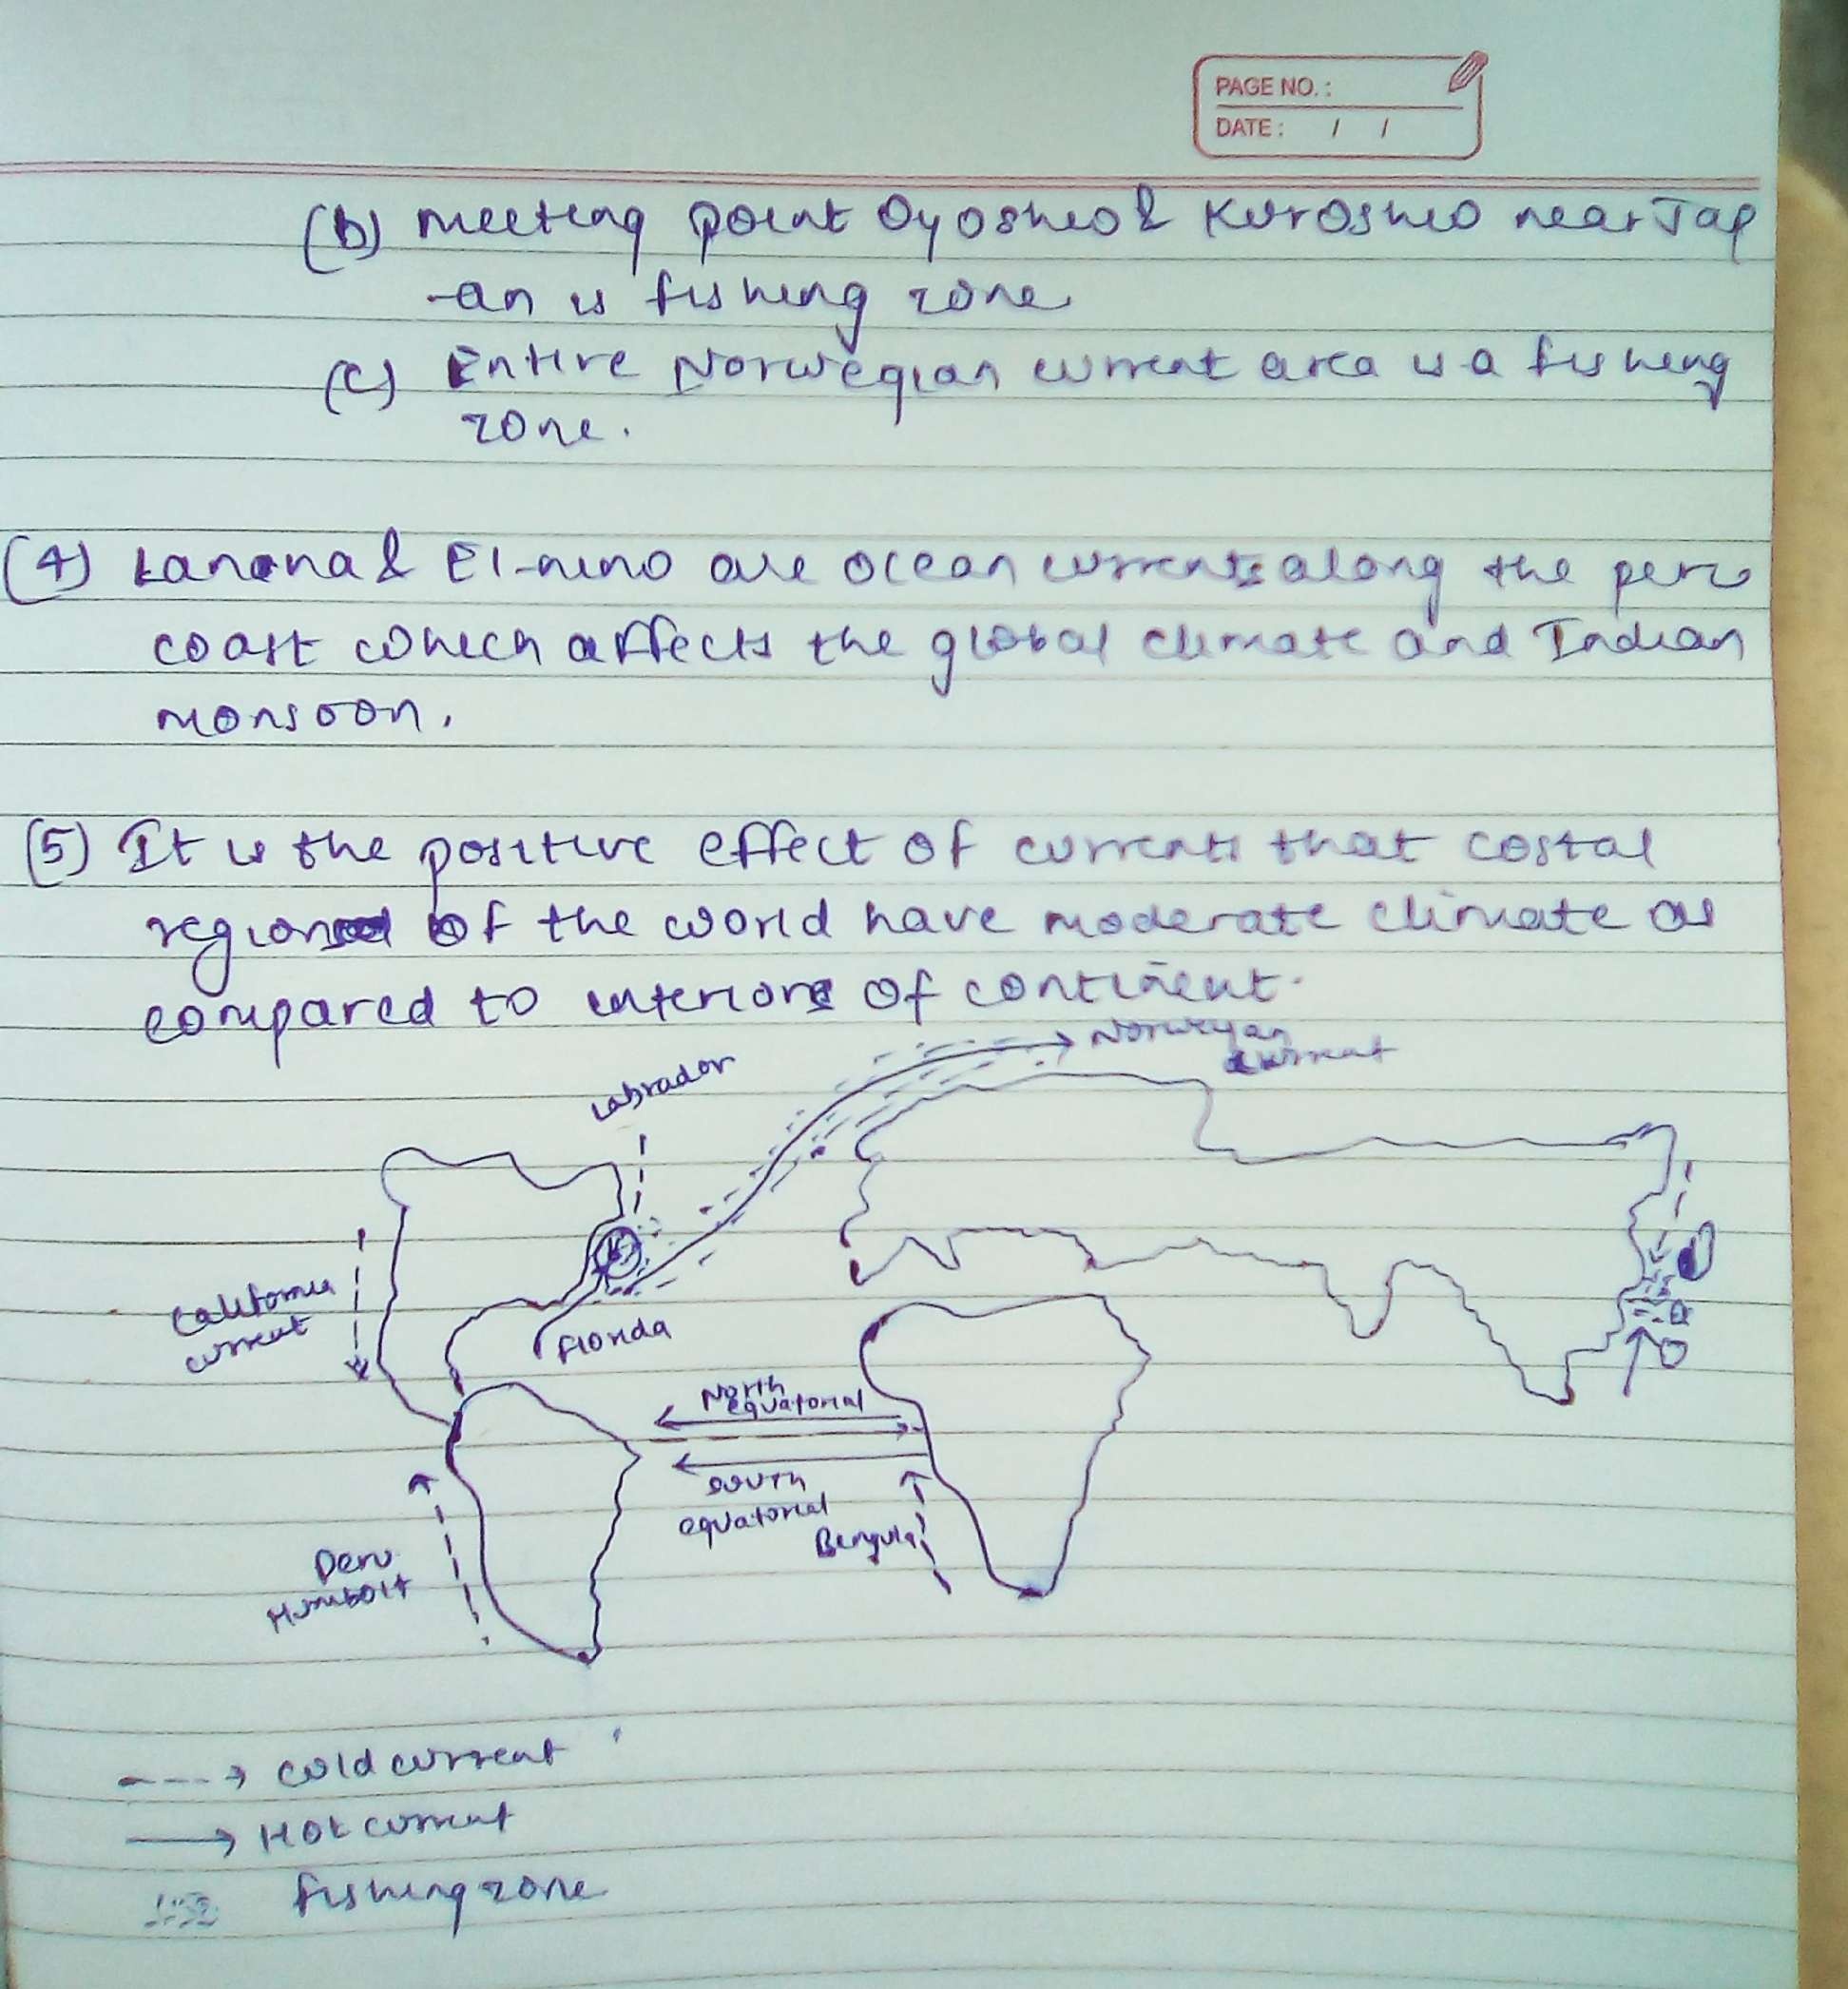 PAGE NO. :
DATE : / /
(b) meeting point Oyoshio & Kuroshio near Jap
-an is fishing zone
(c) Entire Norwegian current area is a fishing
zone.
(4) Lanina & El-nino are ocean currents along the peru
coast which affects the global climate and Indian
monsoon.
(5) It is the positive effect of currents that costal
regions of the world have moderate climate as
compared to interiors of continent.
Norweyan
current
Labrador
California
current
Florida
North
equatorial
south
equatorial
Bengula
Peru
Humbolt
cold current
Hot current
fishing zone